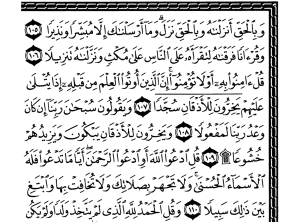 وَبِالْحَقِّ أَنزَلْنَاهُ وَبِالْحَقِّ نَزَلَ وَمَا أَرْسَلْنَاكَ إِلَّا مُبَشِّرًا وَنَذِيرًا ١٠٥
وَقُرْءَانًا فَرَقْنَاهُ لِتَقْرَأَهُ عَلَى النَّاسِ عَلَى مُكْثٍ وَنَزَّلْنَاهُ تَنزِيلًا ١٠٦
قُلْ ءَامِنُوا بِهِ أَوْ لَا تُؤْمِنُوا إِنَّ الَّذِينَ أُوتُوا الْعِلْمَ مِن قَبْلِهِ إِذَا يُتْلَى
عَلَيْهِمْ يَخِرُّونَ لِلْأَذْقَانِ سُجَّدًا ١٠٧ وَيَقُولُونَ سُبْحَانَ رَبِّنَا إِن كَانَ
وَعْدُ رَبِّنَا لَمَفْعُولًا ١٠٨ وَيَخِرُّونَ لِلْأَذْقَانِ يَبْكُونَ وَيَزِيدُهُمْ
خُشُوعًا ۩ ١٠٩ قُلِ ادْعُوا اللَّهَ أَوِ ادْعُوا الرَّحْمَٰنَ أَيًّا مَّا تَدْعُوا فَلَهُ
الْأَسْمَاءُ الْحُسْنَى وَلَا تَجْهَرْ بِصَلَاتِكَ وَلَا تُخَافِتْ بِهَا وَابْتَغِ
بَيْنَ ذَٰلِكَ سَبِيلًا ١١٠ وَقُلِ الْحَمْدُ لِلَّهِ الَّذِي لَمْ يَتَّخِذْ وَلَدًا وَلَمْ يَكُن